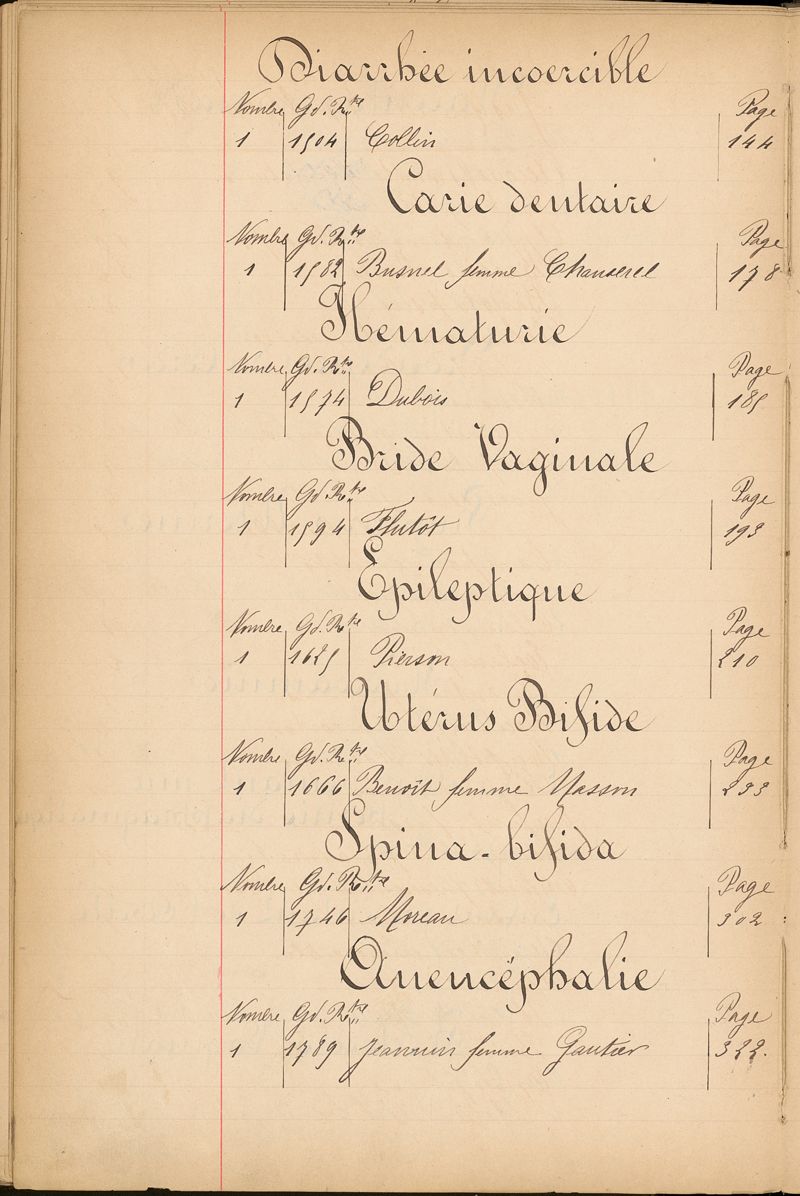 Diarrhée incoercible
Nombre Gd. Rtre Page
1 1504 Collin 144
Carie dentaire
Nombre Gd. Rtre Page
1 1582 Busnel femme Chanserel 178
Hématurie
Nombre Gd. Rtre Page
1 1574 Dubois 185
Bride Vaginale
Nombre Gd. Rtre Page
1 1594 Flutôt 193
Epileptique
Nombre Gd. Rtre Page
1 1625 Pierson 210
Utérus Bifide
Nombre Gd. Rtre Page
1 1666 Benoît femme Masson 233
Spina-bifida
Nombre Gd. Rtre Page
1 1746 Moreau 302
Anencéphalie
Nombre Gd. Rtre Page
1 1789 Jeannin femme Gautier 322.